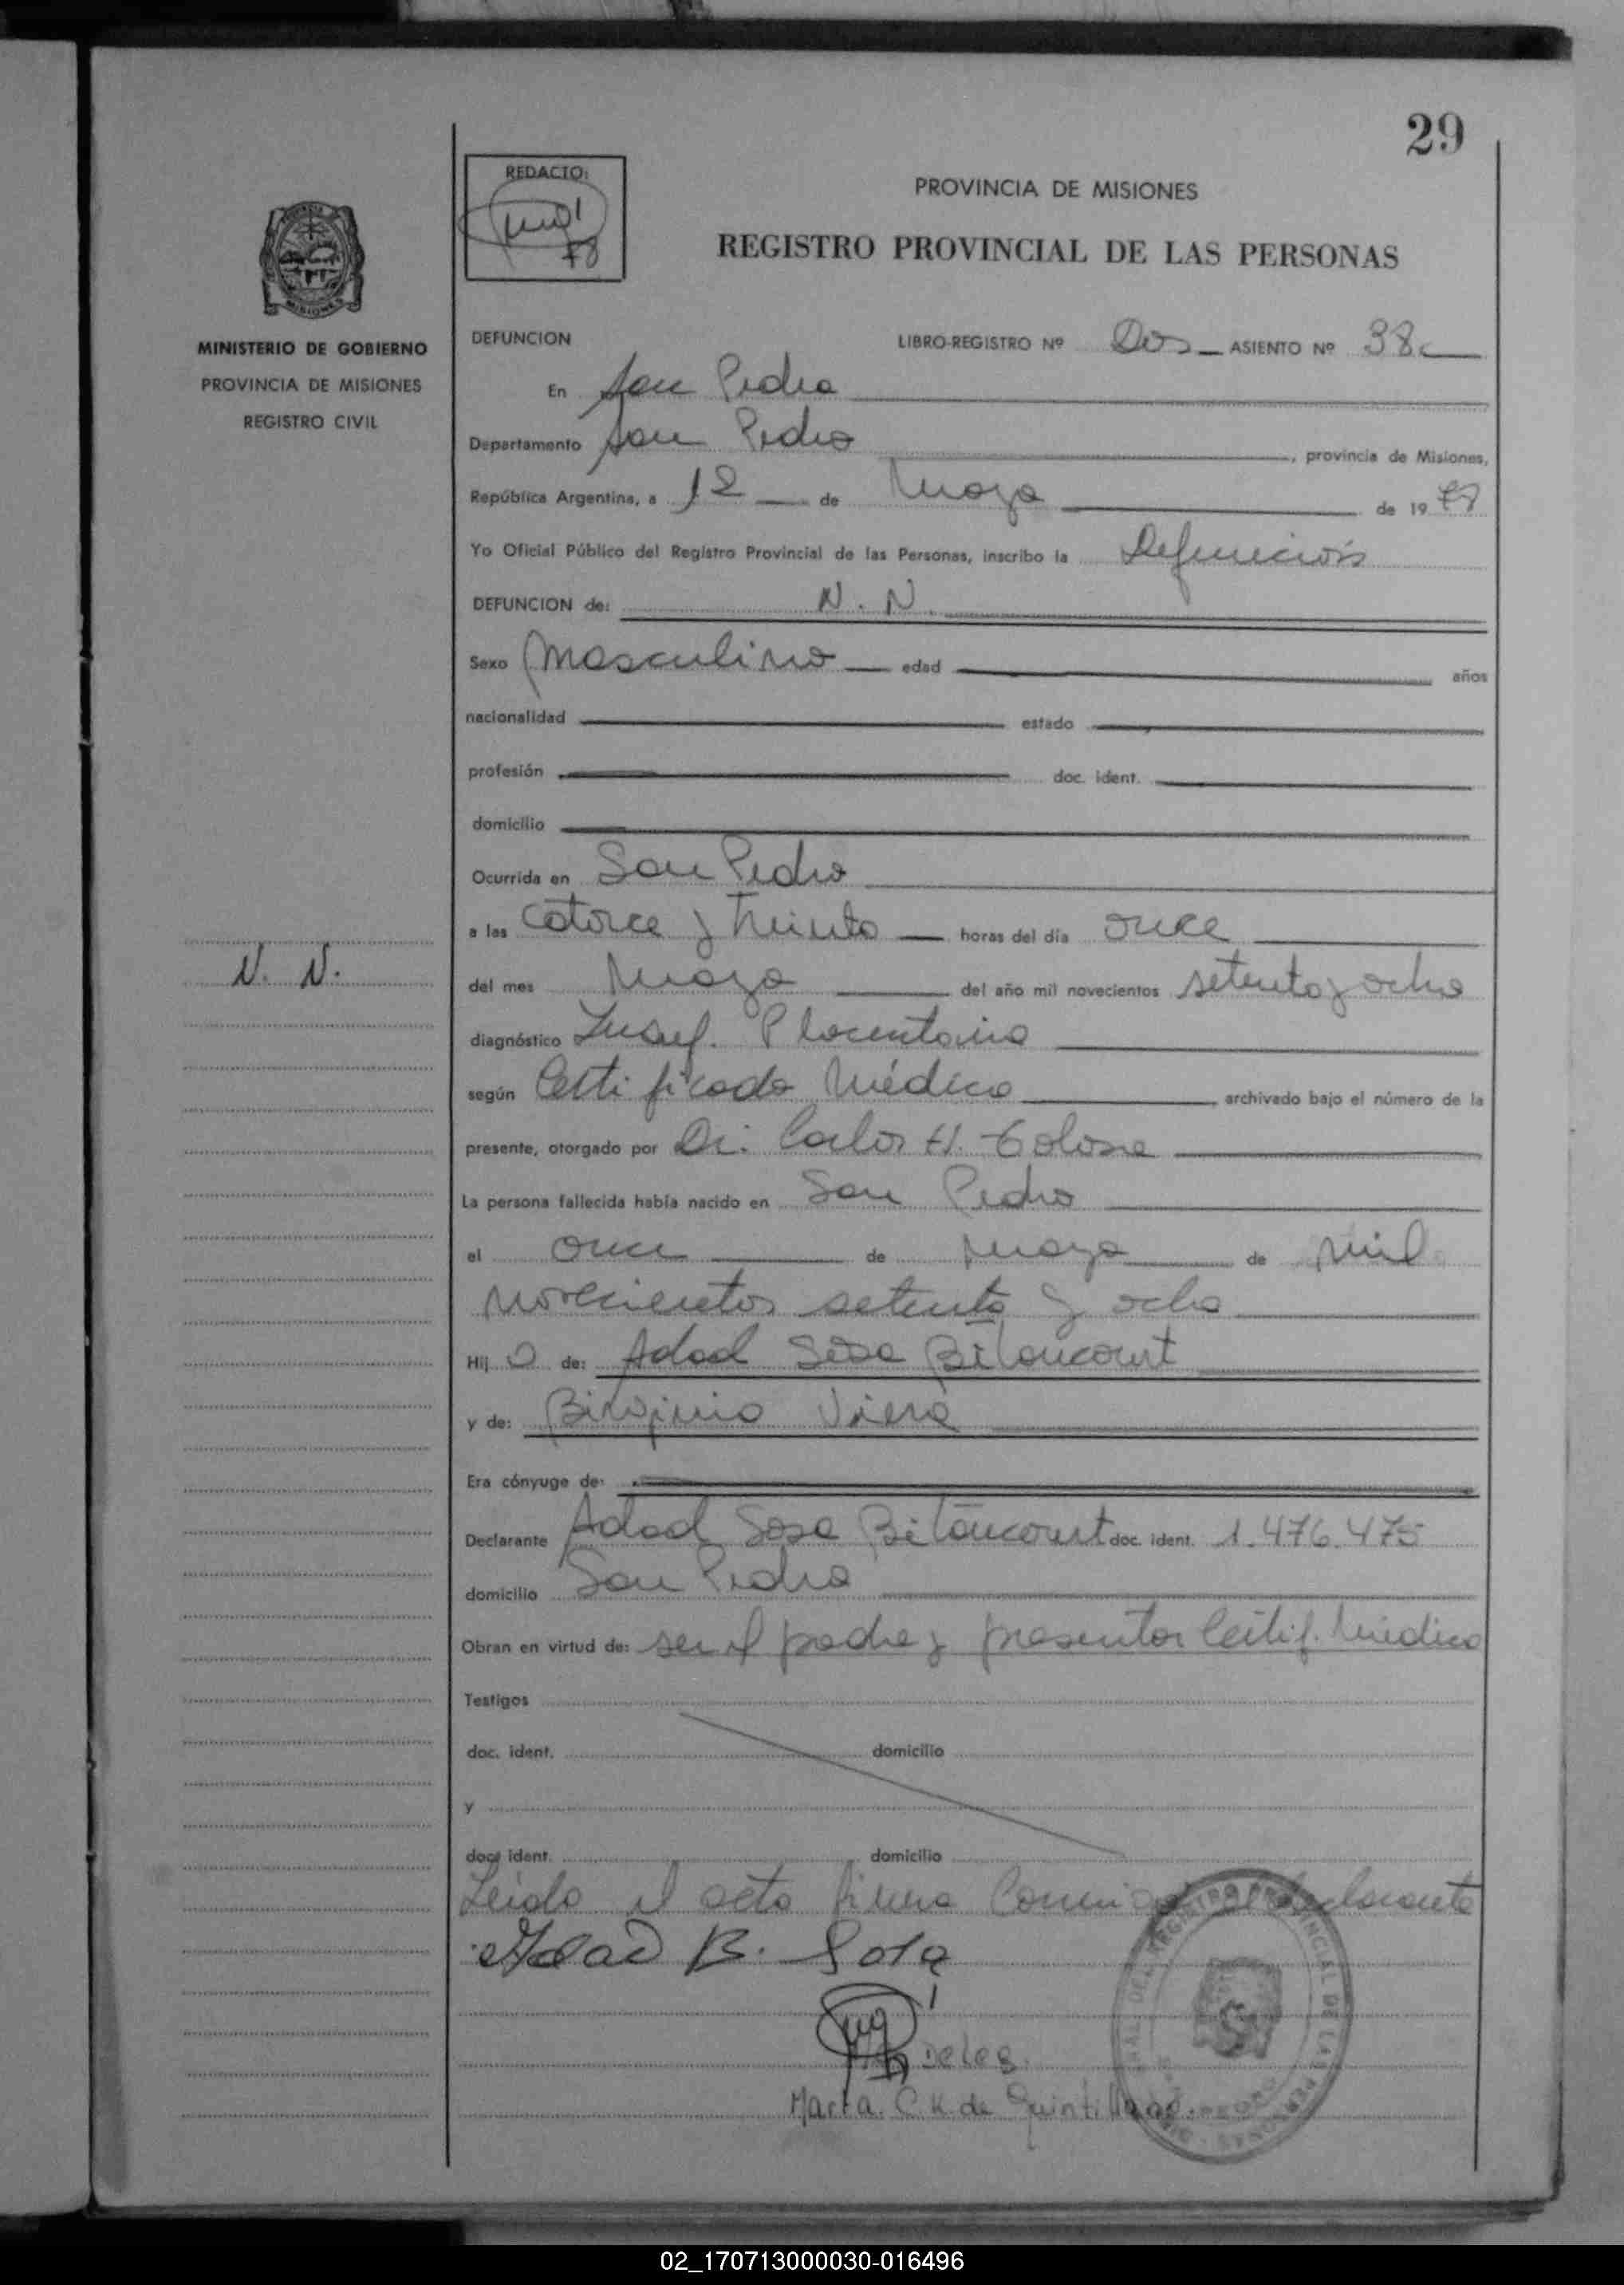 29
REDACTO:
78
PROVINCIA DE MISIONES
REGISTRO PROVINCIAL DE LAS PERSONAS
MISIONES
MINISTERIO DE GOBIERNO
PROVINCIA DE MISIONES
REGISTRO CIVIL
DEFUNCION LIBRO-REGISTRO Nº Dos ASIENTO Nº 38
En San Pedro
Departamento San Pedro, provincia de Misiones,
República Argentina, a 12 de Mayo de 19 78
Yo Oficial Público del Registro Provincial de las Personas, inscribo la Defunción
DEFUNCION de: N. N.
Sexo Masculino edad años
nacionalidad estado
profesión doc. ident.
domicilio
Ocurrida en San Pedro
a las Catorce y treinta horas del día once
N. N.
del mes Mayo del año mil novecientos setenta y ocho
diagnóstico Insuf. Placentaria
según Certificado Médico archivado bajo el número de la
presente, otorgado por Dr. Carlos H.
La persona fallecida había nacido en San Pedro
el once de Mayo de mil
novecientos setenta y ocho
Hij o de: Adad Sosa Bitancourt
y de: Birginia Viera
Era cónyuge de:
Declarante Adad Sosa Bitancourt doc. ident. 1.476.475
domicilio San Pedro
Obran en virtud de: ser el padre y presentar Certif. Médico
Testigos
doc. ident. domicilio
y
doc. ident. domicilio
Leída el acta firma Conmigo el declarante
Adad B. Sosa
Deleg.
Marta. C K. de Quintillana.
02_170713000030-016496